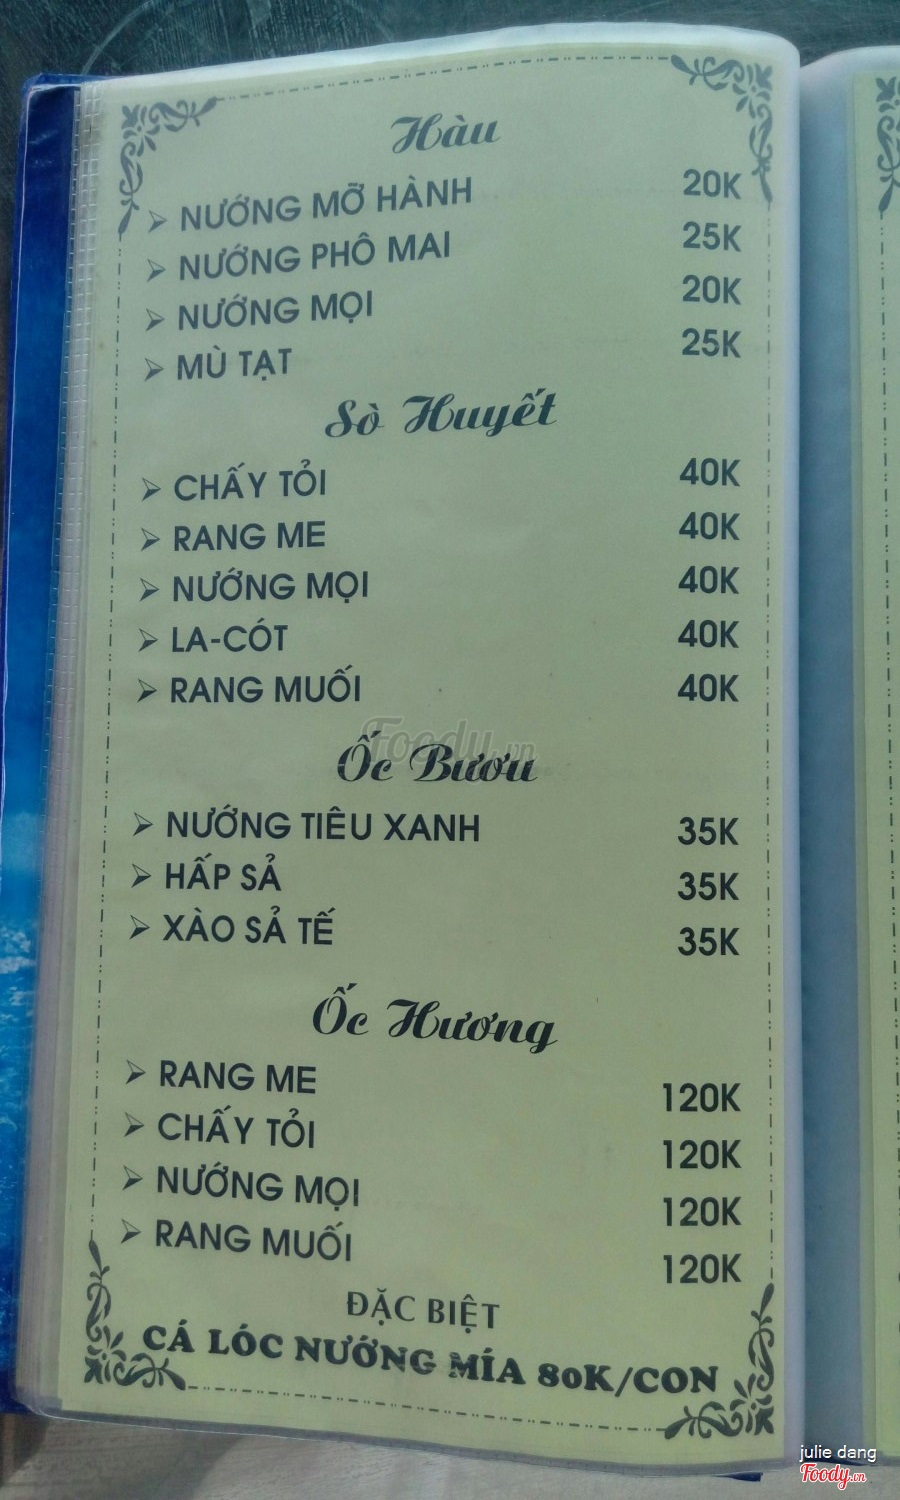 Hàu
NƯỚNG MỠ HÀNH 20K
NƯỚNG PHÔ MAI 25K
NƯỚNG MỌI 20K
MÙ TẠT 25K
Sò Huyết
CHẤY TỎI 40K
RANG ME 40K
NƯỚNG MỌI 40K
LA-CÓT 40K
RANG MUỐI 40K
Foody.vn
Ốc Bươu
NƯỚNG TIÊU XANH 35K
HẤP SẢ 35K
XÀO SẢ TẾ 35K
Ốc Hương
RANG ME 120K
CHẤY TỎI 120K
NƯỚNG MỌI 120K
RANG MUỐI 120K
ĐẶC BIỆT
CÁ LÓC NƯỚNG MÍA 80K/CON
julie dang
Foody.vn